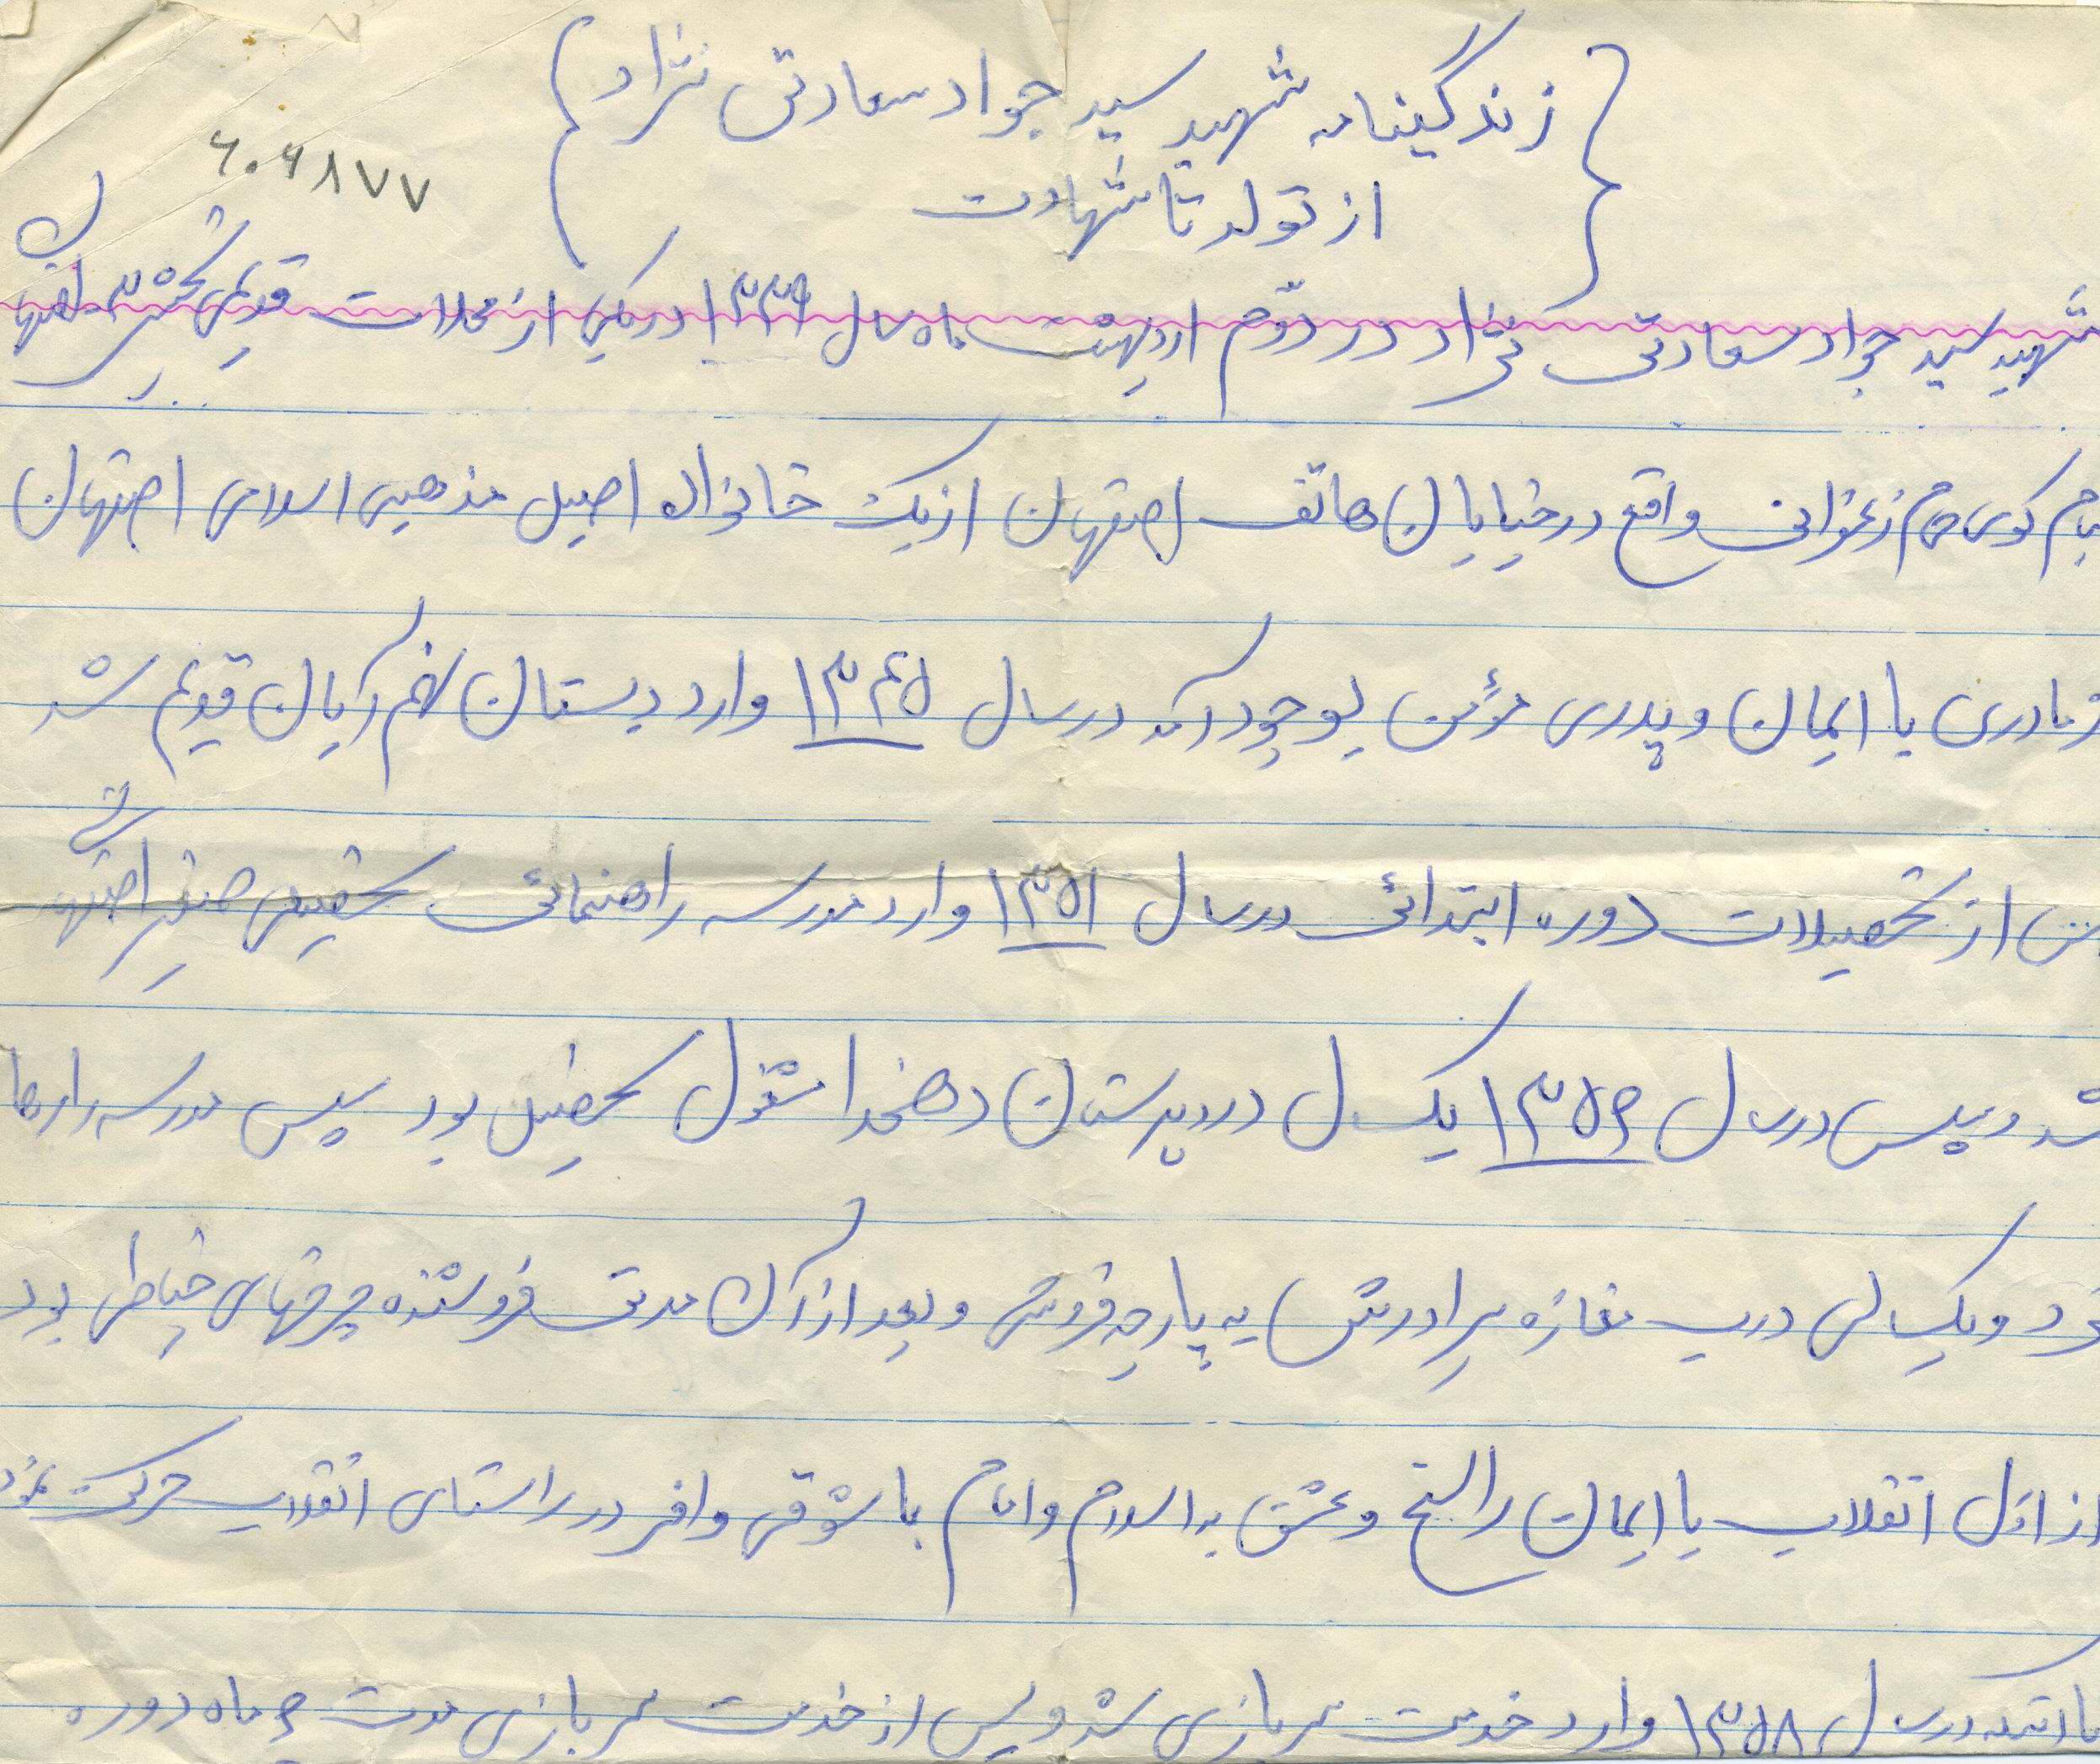 زندگینامه شهید سید جواد سعادتی نژاد
از تولد تا شهادت
۶۰۶۸۷۷
شهید سید جواد سعادتی نژاد در دوّم اردیبهشت ماه سال ۱۳۳۹ در یکی از محلات قدیمی شهر اصفهان
بنام کوی زعفرانی واقع در خیابان هاتف اصفهان از یک خانواده اصیل مذهبی اسلامی اصفهان
مادری با ایمان و پدری مؤمن بوجود آمد در سال ۱۳۴۵ وارد دبستان قدیم شد
پس از تحصیلات دوره ابتدائی در سال ۱۳۵۱ وارد مدرسه راهنمائی صغیر اصفهانی
شد و سپس در سال ۱۳۵۴ یکسال در دبیرستان دهخدا مشغول تحصیل بود سپس مدرسه را رها
کرد و یکسالی درب مغازه برادرش به پارچه فروشی و بعد از آن مدتی فروشنده چرخهای خیاطی بود
از اوّل انقلاب با ایمان راسخ و عشق به اسلام و امام با شوقی وافر در راستای انقلاب حرکت نمود
تا اینکه در سال ۱۳۵۸ وارد خدمت سربازی شد و پس از خدمت سربازی مدت ۴ ماه دوره